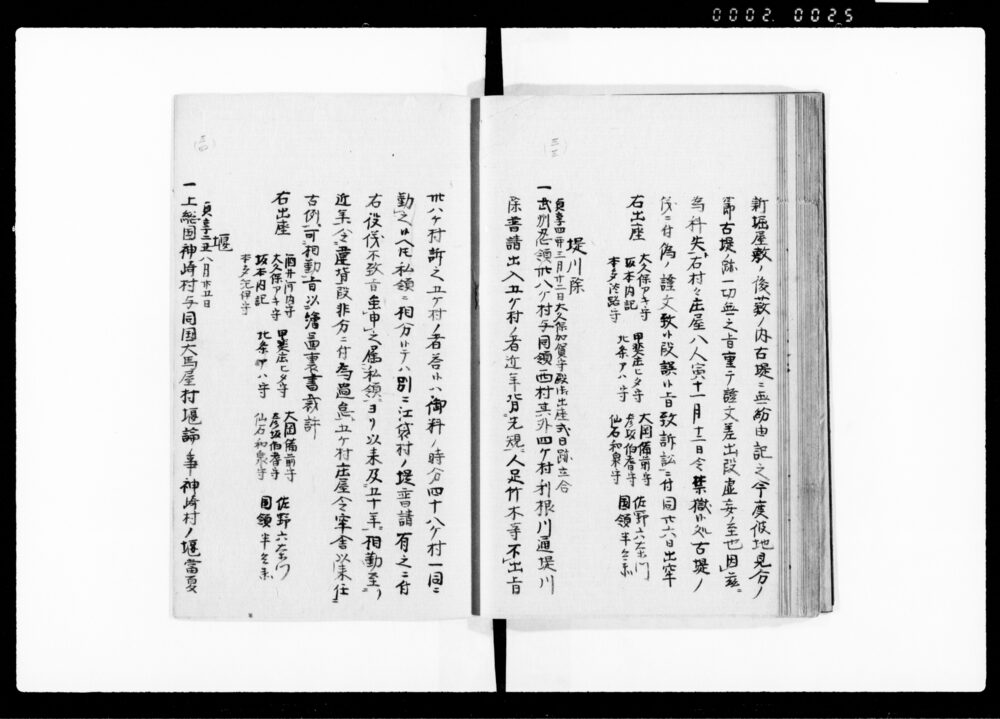 0002 0025
(三三)
新堀屋敷ノ後薮ノ内古堤ニ無紛由記之今度彼地見分ノ
節古堤ノ跡一切無之旨重テ證文差出段虚妄ノ至也因茲
為科失右村々庄屋八人寅十一月十二日令禁獄候処古堤ノ
儀ニ付偽ノ證文致候段誤候旨致訴訟ニ付同廿六日出牢
右出座
大久保アキ守 甲斐庄ヒタ守 大岡備前守 佐野六右衛門
坂本内記 北条アハ守 彦坂伯耆守 国領半兵衛
本多淡路守 仙石和泉守
堤川除
貞享四卯三月廿二日大久保加賀守殿御出座式日跡立合
一武州忍領卅八ケ村与同領酉村其外四ケ村利根川通堤川
除普請出入五ケ村ノ者近年背先規人足竹木等不出旨
(三四)
卅八ケ村訴之五ケ村ノ者答候ハ御料ノ時分四十八ケ村一同ニ
勤之候ヘ氏私領ニ相分候テハ別ニ江袋村ノ堤普請有之ニ付
右役儀不致旨雖申之属私領ヨリ以来及五十年相勤至ノ
近年令違背段非分ニ付為過怠五ケ村庄屋令牢舎以来任
古例可相勤旨以繪圖裏書裁許
右出座
酒井河内守 甲斐庄ヒタ守 大岡備前守 佐野六右衛門
大久保アキ守 北条アハ守 彦坂伯耆守 国領半兵衛
坂本内記 仙石和泉守
本多淡伊守
堰
貞享二丑八月廿五日
一上総国神崎村与同国大馬屋村堰論ノ事神崎村ノ堰當夏